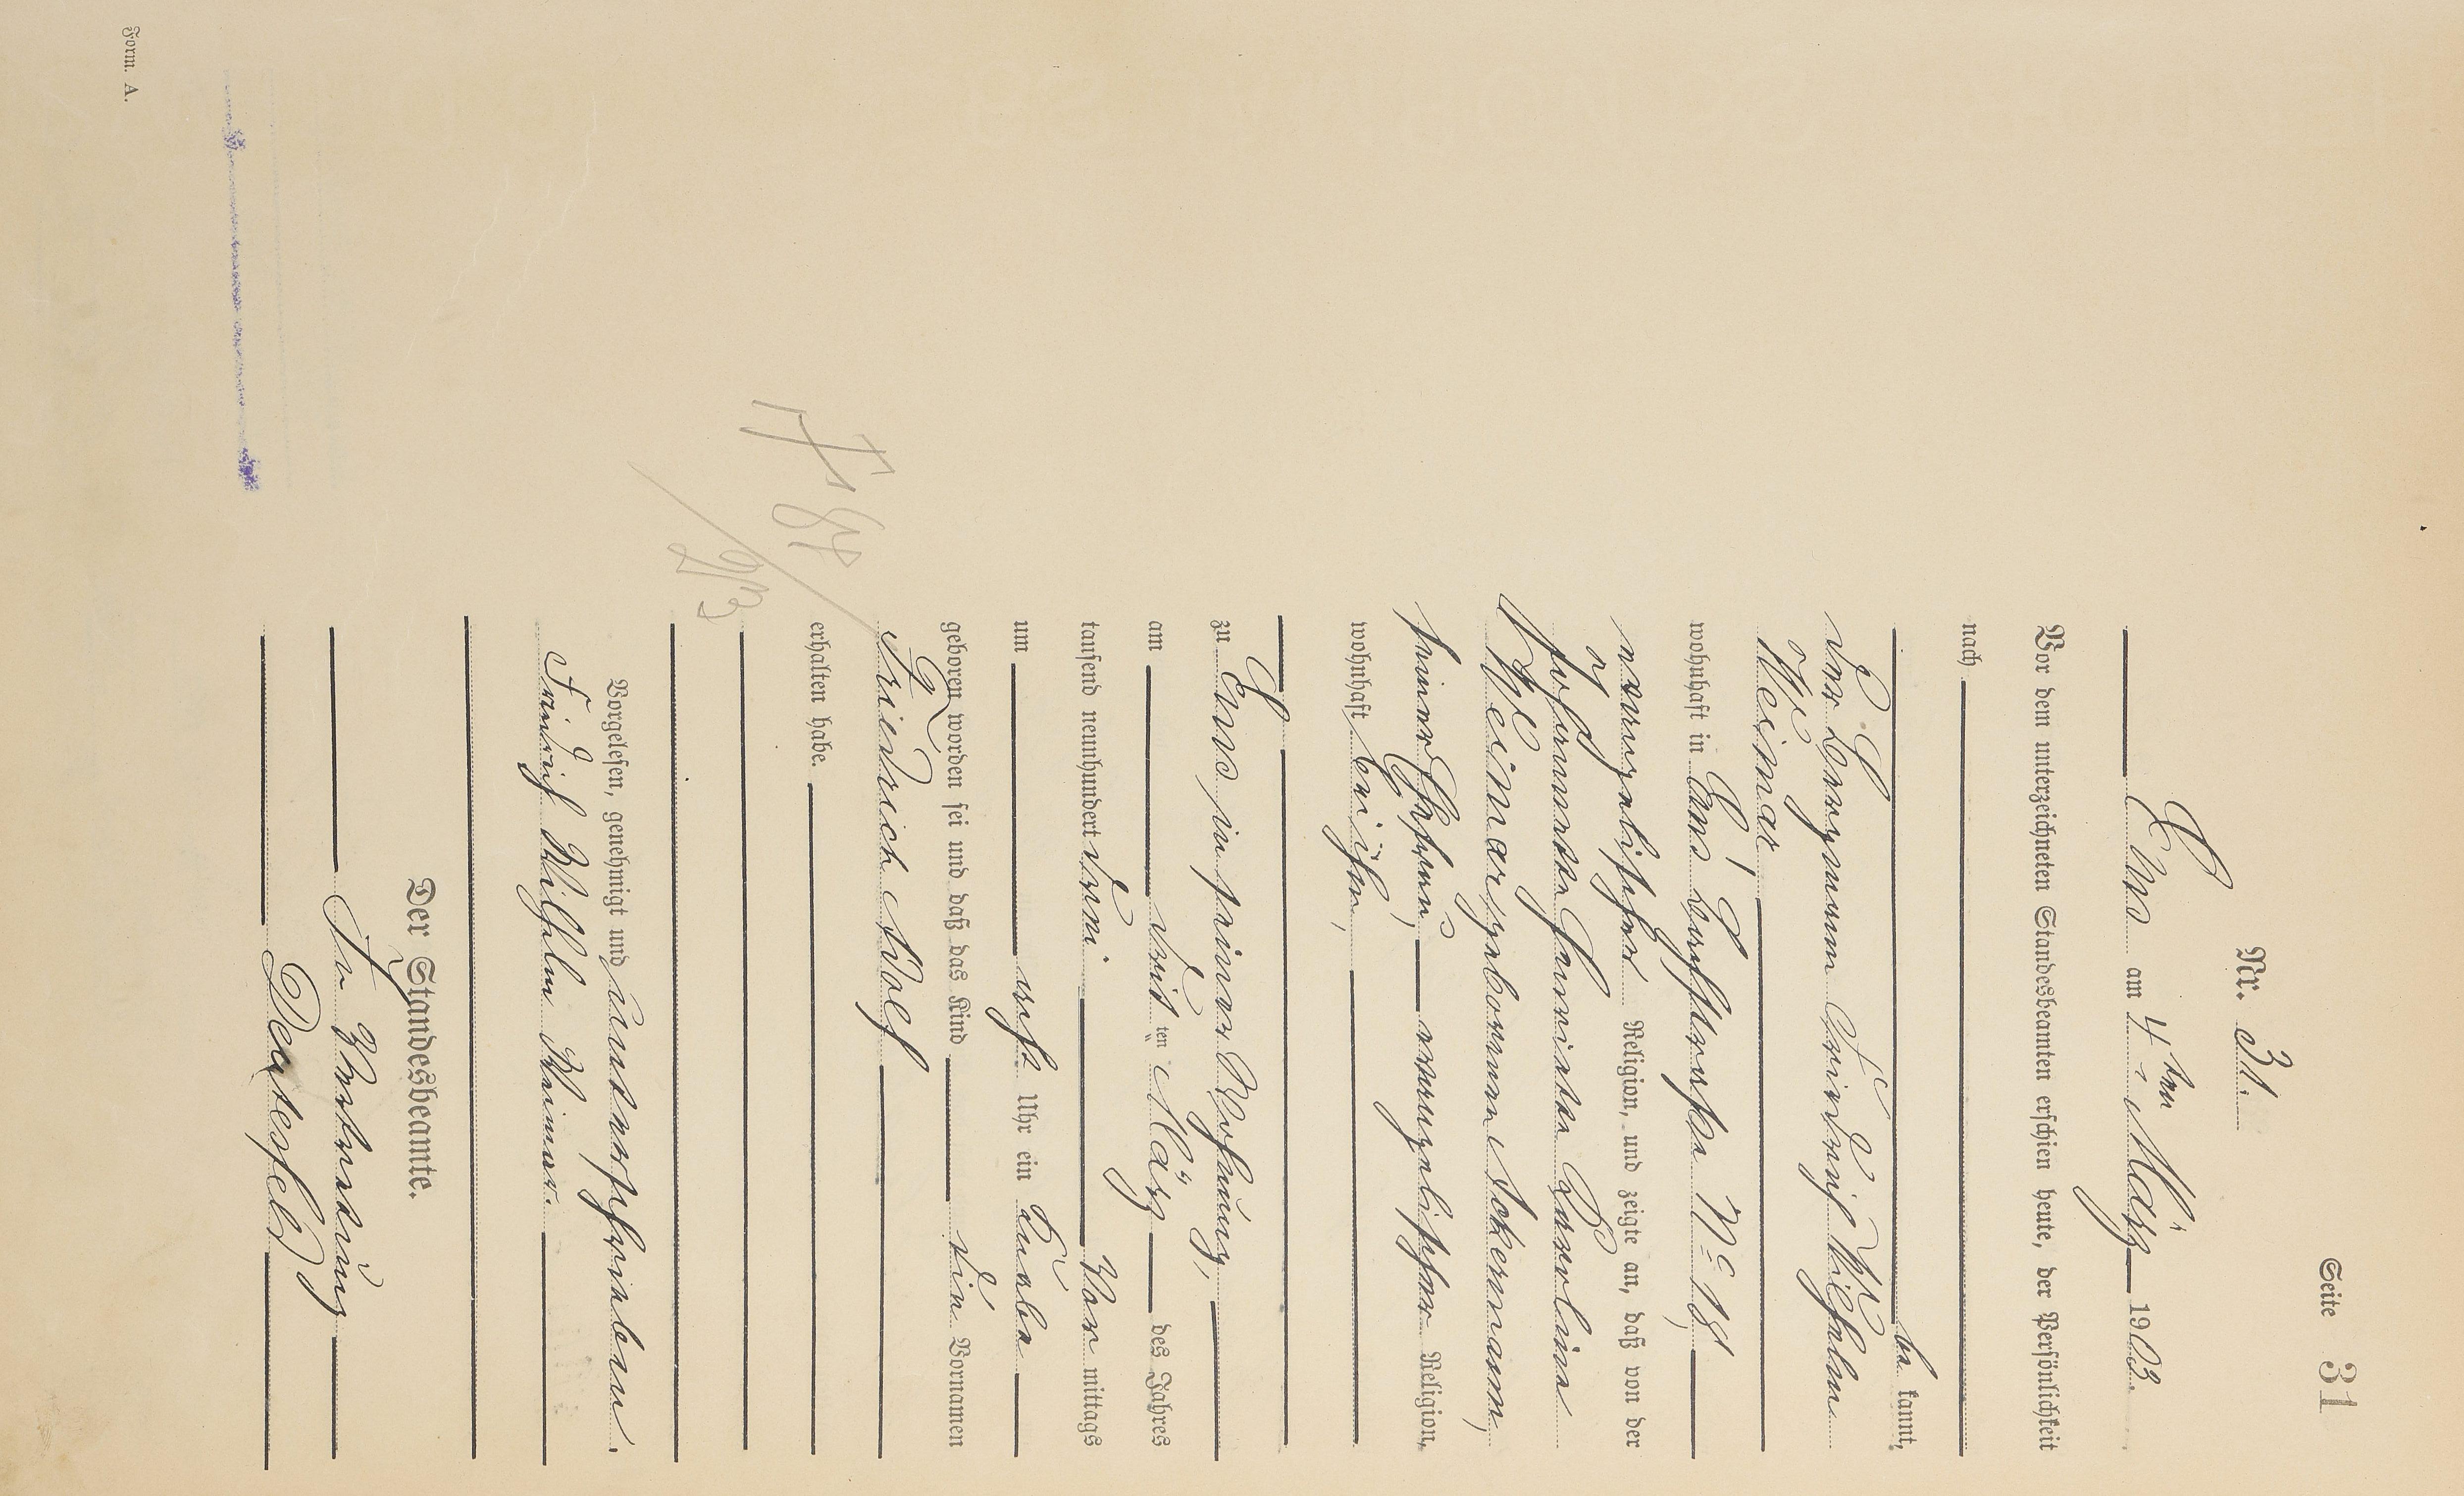 Seite 31
Nr. 31.
Ems am 4ten März 1903.
Vor dem unterzeichneten Standesbeamten erschien heute, der Persönlichkeit
nach
be kannt,
der Bergmann Friedrich Wilhelm
Weimar
wohnhaft in Ems, Bachstraße No 18,
evangelischer Religion, und zeigte an, daß von der
Johannette Henriette Karoline
Weimar, geborenen Ackermann,
seiner Ehefrau, evangelischer Religion,
wohnhaft bei ihm,
zu Ems in seiner Wohnung,
am dritten März des Jahres
tausend neunhundert drei Vor mittags
um acht Uhr ein Knabe
geboren worden sei und daß das Kind die Vornamen
Friedrich Adolf
erhalten habe.
Vorgelesen, genehmigt und unterschrieben.
Friedrich Wilhelm Weimar.
Der Standesbeamte.
In Vertretung
Form. A.